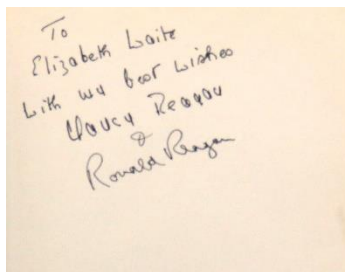 To
Elizabeth Waite
With my best wishes
Nancy Reagan
&
Ronald Reagan